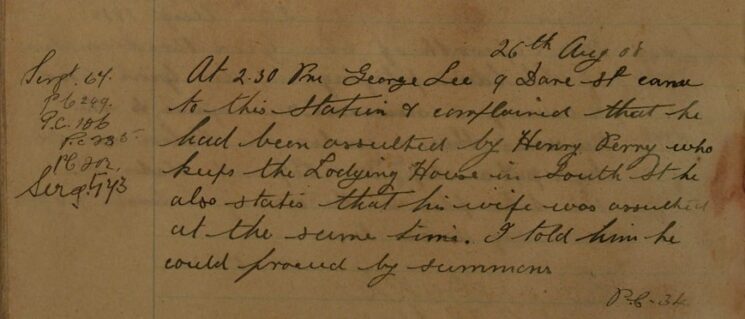 26th Aug 08
Sergt. 64.
P.C 249.
P.C. 106
P.C 235.
P.C 202.
Sergt 143
At 2.30 Pm George Lee 9 Dane St came
to this Station & complained that he
had been assulted by Henry Perry who
keeps the Lodging House in South St he
also states that his wife was assulted
at the same time. I told him he
could proceed by summons
P.C- 34